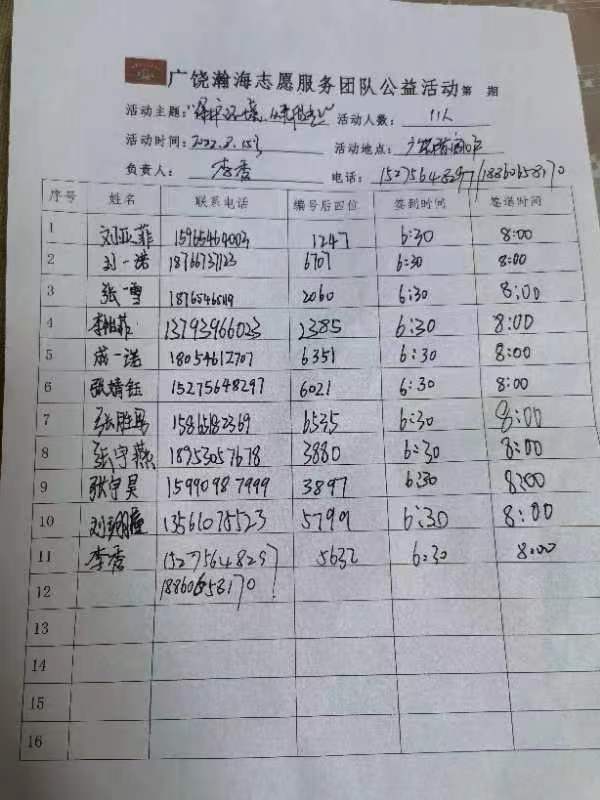 广饶瀚海志愿服务团队公益活动 第 期
活动主题： 活动人数： 11人
活动时间：2022.7.15号 活动地点：
负责人： 李香 电话： 15275648297/18860658170
序号 姓名 联系电话 编号后四位 签到时间 签退时间
1 刘亚菲 15965464003 1247 6:30 8:00
2 刘一诺 18766737123 6707 6:30 8:00
3 张一雪 2060 6:30 8:00
4 13793966023 2385 6:30 8:00
5 一诺 18054612707 6351 6:30 8:00
6 张婧钰 15275648297 6021 6:30 8:00
7 张胜男 15865182369 6535 6:30 8:00
8 张宇燕 18953057678 3880 6:30 8:00
9 张宇昊 15990987999 3897 6:30 8:00
10 13561075523 5799 6:30 8:00
11 李香 15275648297 5632 6:30 8:00
12 18860658170
13
14
15
16